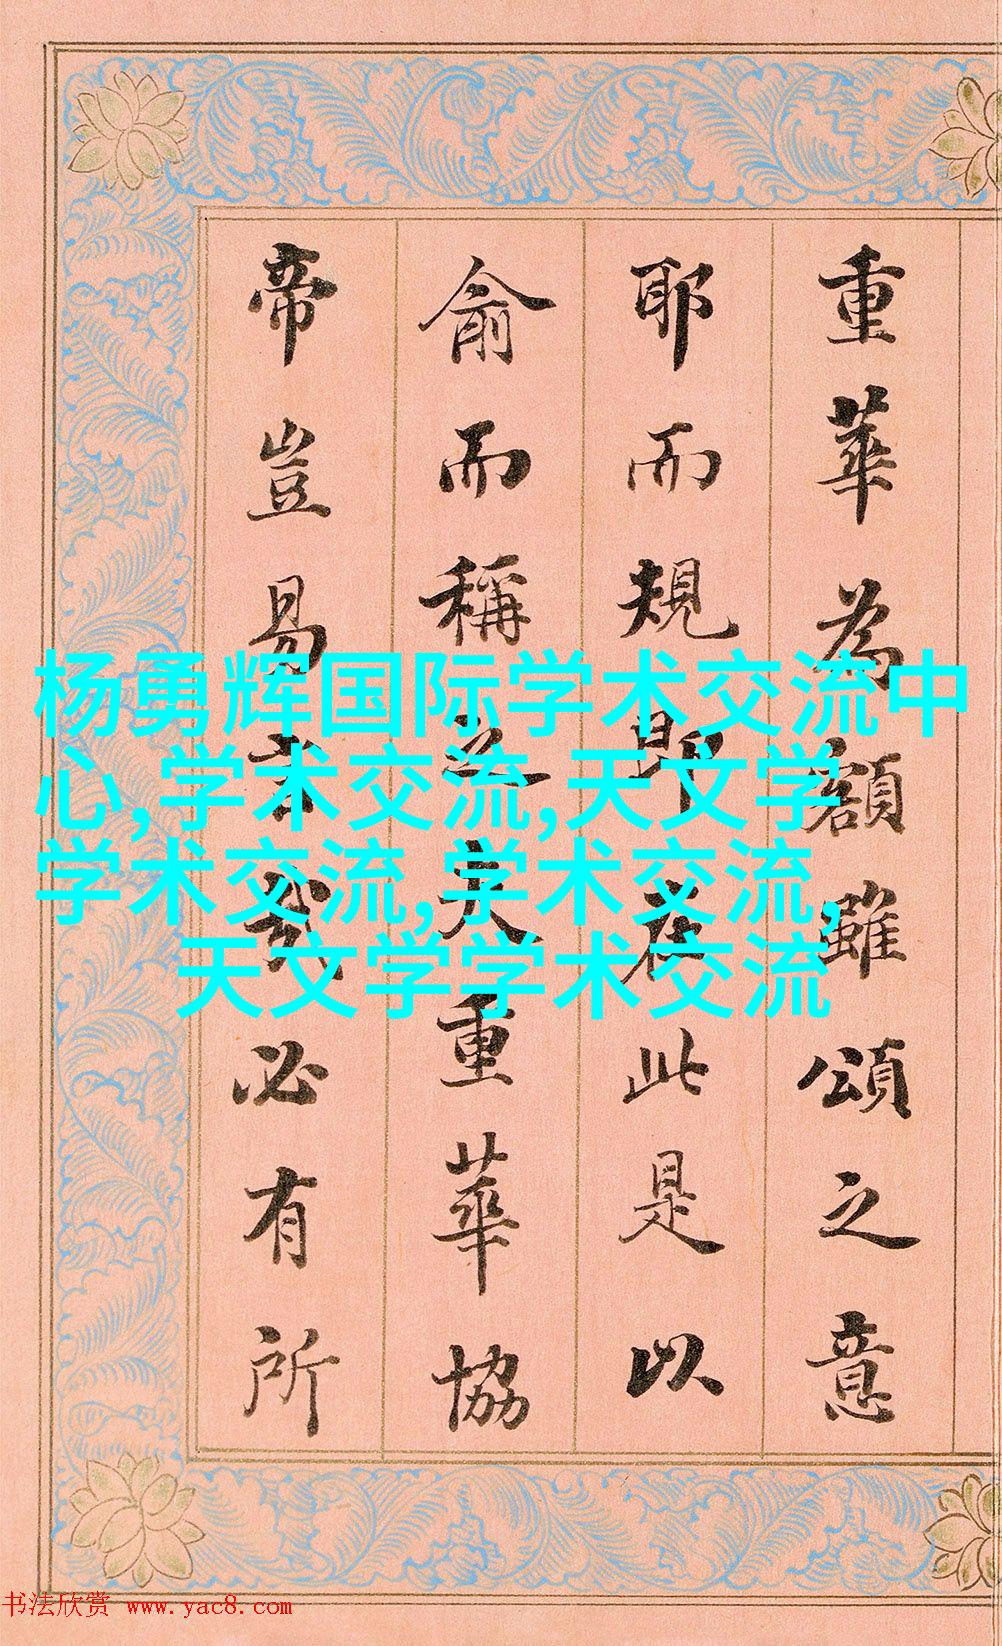 重華為額雖頌之意
耶而規即在此是以
俞而稱之大重華協
帝豈易言哉必有所
杨勇辉国际学术交流中
心,学术交流,天文学
学术交流,学术交流,
天文学学术交流
书法欣赏 www.yac8.com